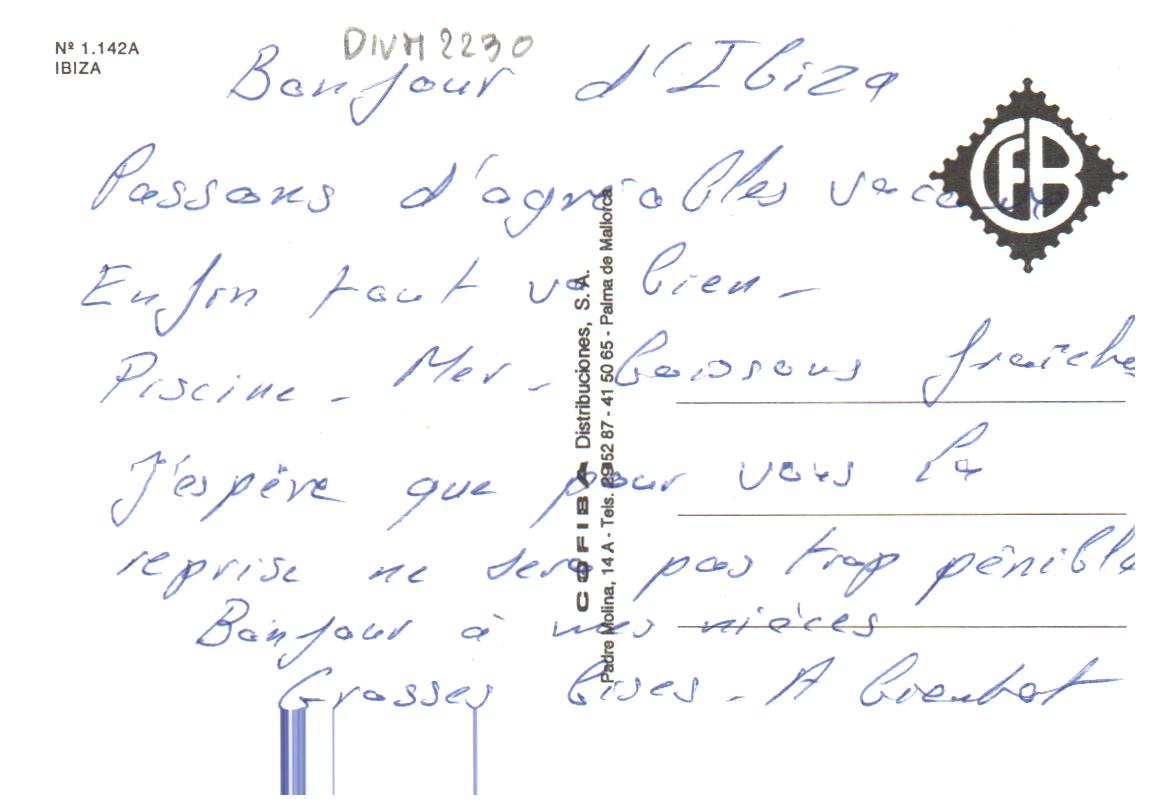 Nº 1.142A
IBIZA
DIVM 2230
Bonjour d'Ibiza
Passons d'agréables
Enfin tout va bien -
Piscine - Mer - boissons fraîche
J'espère que pour vous la
reprise ne sera pas trop pénible
Bonjour à mes nièces
Grosses bises - A bientot
COFIBA Distribuciones, S.A.
Padre Molina, 14 A - Tels. 29 52 87 - 41 50 65 - Palma de Mallorca
CFB